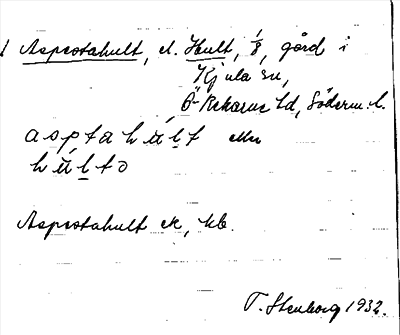 Aspestahult, el. Hult, 1/8, gård i
Kjula sn,
Ö-Rekarne hd, Söderm. l.
asptahult eller
hulto
Aspestahult ek, kb.
T. Stenborg 1932.